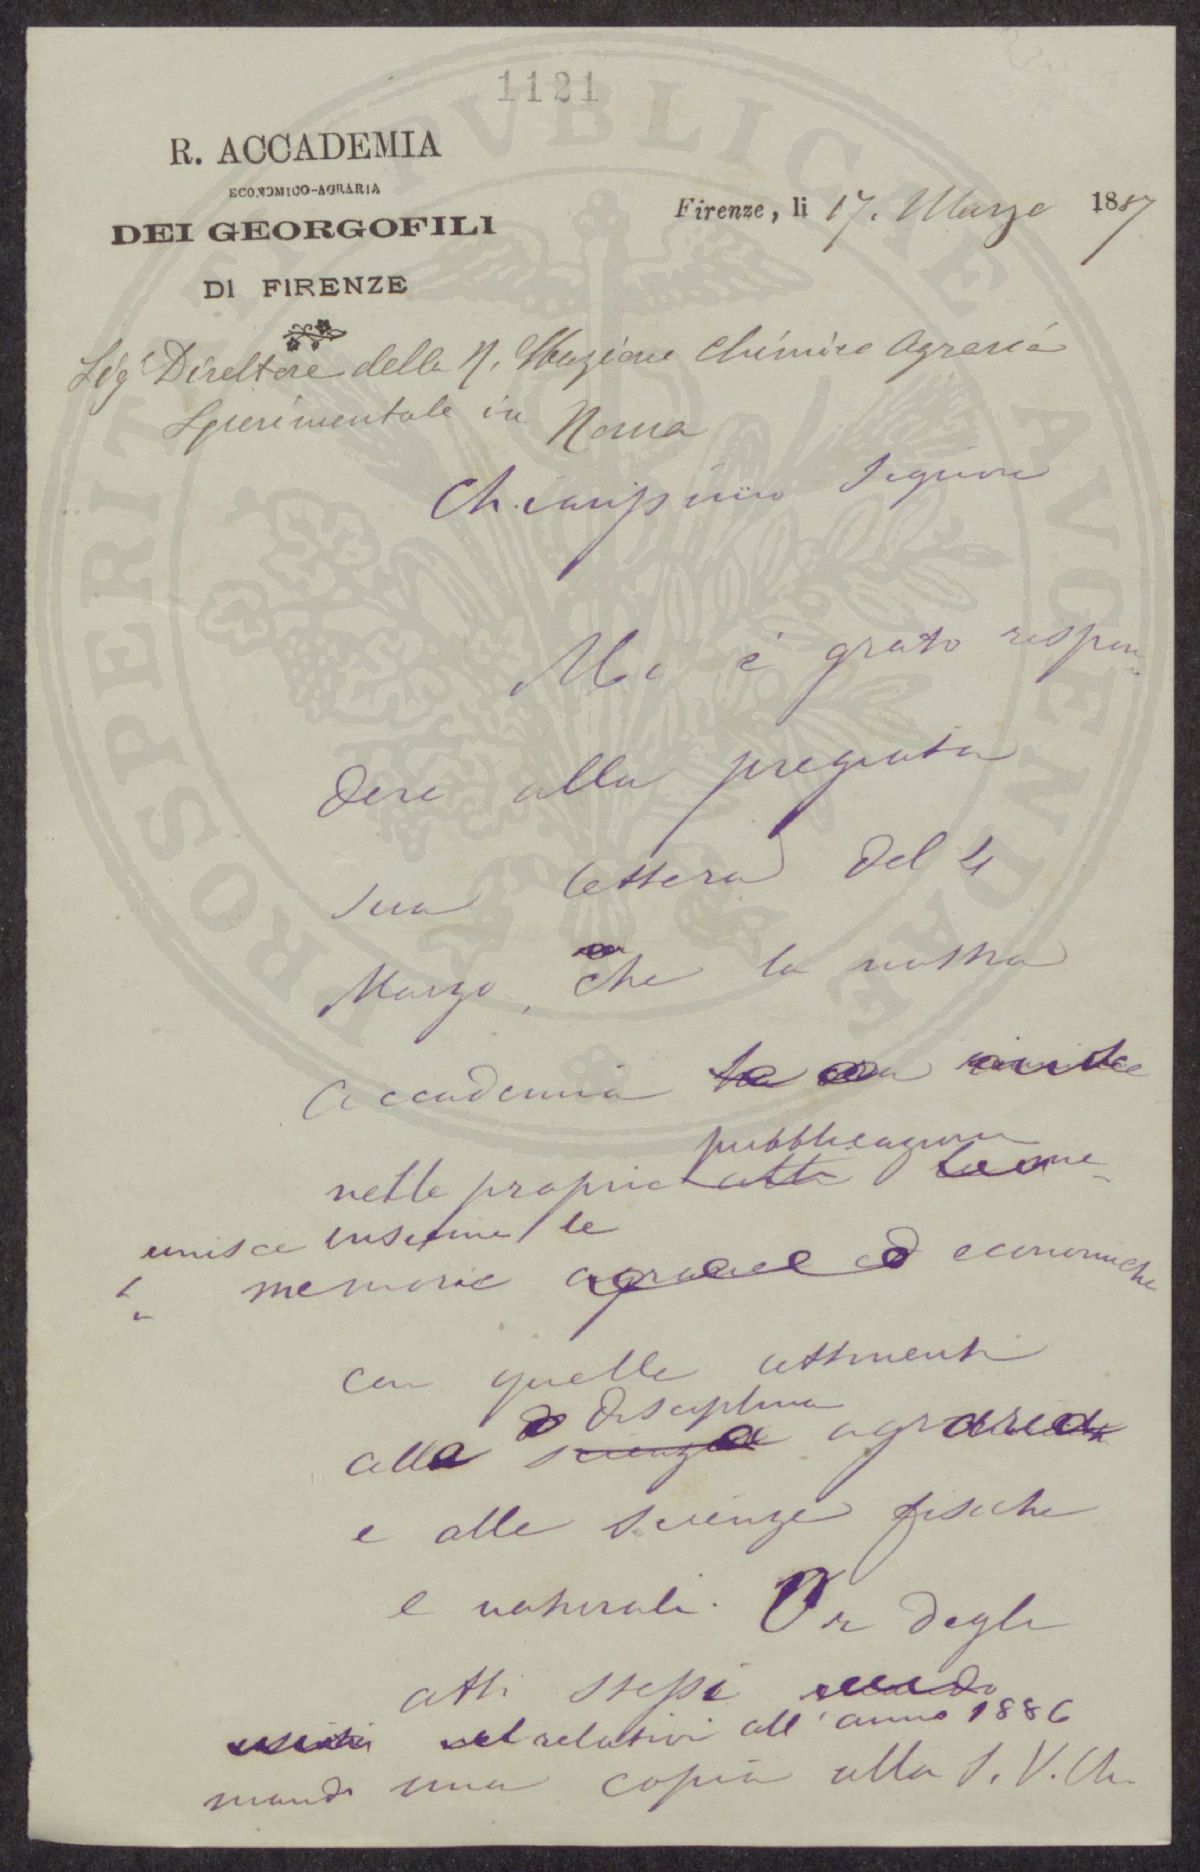 1121
R. ACCADEMIA
ECONOMICO-AGRARIA
DEI GEORGOFILI
DI FIRENZE
Firenze, li 17. Marzo 1887
Sigr Direttore della R. Stazione Chimico Agraria
Sperimentale in Roma
Chiarissimo Signore
Mi è grato rispon-
dere alla pregiata
sua lettera del 4
Marzo, che la nostra
Accademia
pubblicazioni
nelle proprie atti
unisce insieme le
memorie economiche
con quelle attinenti
discipline
alle scienze agrarie
e alle scienze fisiche
e naturali. Or degli
atti stessi
relativi all'anno 1886
mando una copia alla S. V. Ch.
PROSPERITATI PVBLICAE AVGENDAE